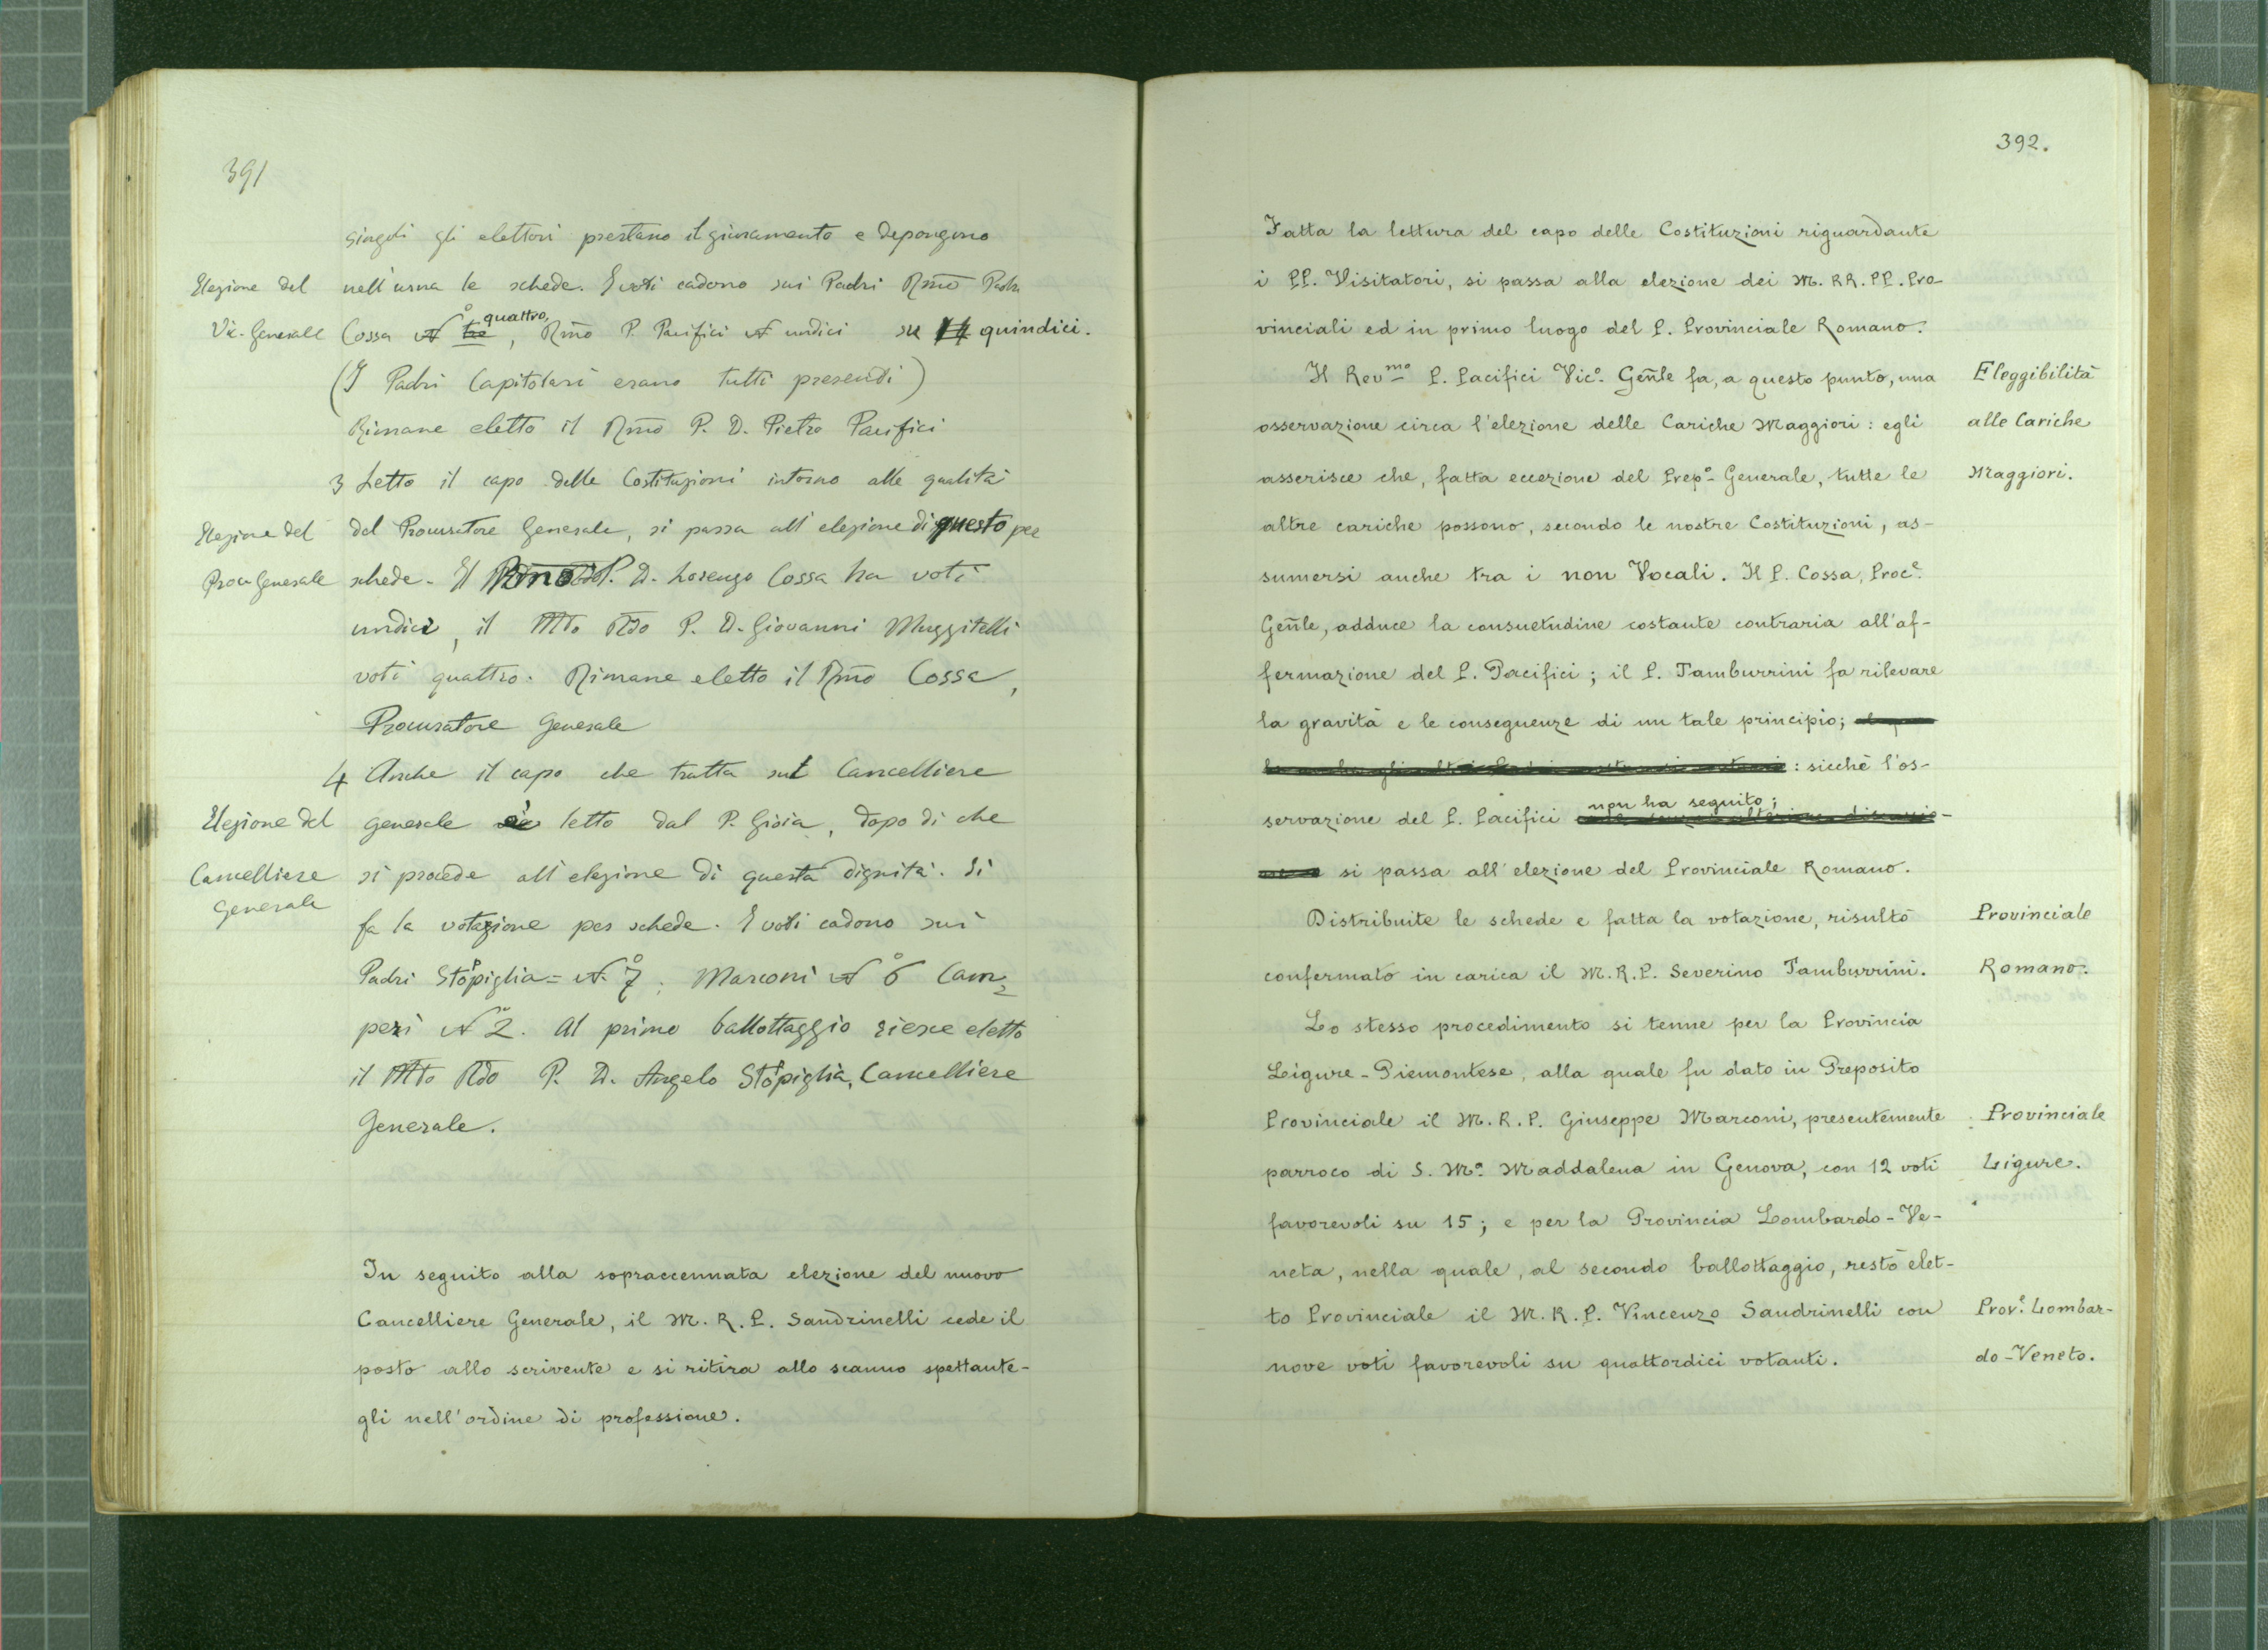 391
singoli gli elettori prestano il giuramento e depongono
Elezione del
nell'urna le schede. I voti cadono sui Padri Rmo Padre
Vic. Generale
quattro,
Cossa No tre, Rmo P. Pacifici N undici su 14 quindici.
(I Padri Capitolari erano tutti presendi)
Rimane eletto il Rmo P. D. Pietro Pacifici
3 Letto il capo delle Costituzioni intorno alle qualità
Elezione del
del Procuratore Generale, si passa all'elezione di questo per
Proc Generale
schede. Il P. D. Lorenzo Cossa ha voti
undici, il Mto Rdo P. D. Giovanni Muzzitelli
voti quattro. Rimane eletto il Rmo Cossa,
Procuratore Generale
4 Anche il capo che tratta sul Cancelliere
Elezione del
generale è letto dal P. Gioia, dopo di che
Cancelliere
Generale
si procede all'elezione di questa dignità. Si
fa la votazione per schede. I voti cadono sui
Padri Stoppiglia = No 7; Marconi No 6 Cam=
peri No 2. Al primo ballottaggio riesce eletto
il Mto Rdo P. D. Angelo Stoppiglia, Cancelliere
Generale.
In seguito alla sopraccennata elezione del nuovo
Cancelliere Generale, il M. R. P. Sandrinelli cede il
posto allo scrivente e si ritira allo scanno spettante-
gli nell'ordine di professione.
392.
Fatta la lettura del capo delle Costituzioni riguardante
i PP. Visitatori, si passa alla elezione dei M. RR. PP. Pro-
vinciali ed in primo luogo del P. Provinciale Romano.
Il Revmo P. Pacifici Vico. Genle fa, a questo punto, una
Eleggibilità
osservazione circa l'elezione delle Cariche Maggiori: egli
alle Cariche
asserisce che, fatta eccezione del Prepo Generale, tutte le
Maggiori.
altre cariche possono, secondo le nostre Costituzioni, as-
sumersi anche tra i non Vocali. Il P. Cossa, Proce.
Genle, adduce la consuetudine costante contraria all'af-
fermazione del P. Pacifici; il P. Tamburrini fa rilevare
la gravità e le conseguenze di un tale principio;
: sicchè l'os-
non ha seguito;
servazione del P. Pacifici
si passa all'elezione del Provinciale Romano.
Distribuite le schede e fatta la votazione, risultò
Provinciale
confermato in carica il M. R. P. Severino Tamburrini.
Romano.
Lo stesso procedimento si tenne per la Provincia
Ligure-Piemontese, alla quale fu dato in Preposito
Provinciale il M. R. P. Giuseppe Marconi, presentemente
Provinciale
parroco di S. Ma. Maddalena in Genova, con 12 voti
Ligure.
favorevoli su 15; e per la Provincia Lombardo-Ve-
neta, nella quale, al secondo ballottaggio, restò elet-
to Provinciale il M. R. P. Vincenzo Sandrinelli con
Prove. Lombar-
nove voti favorevoli su quattordici votanti.
do-Veneto.